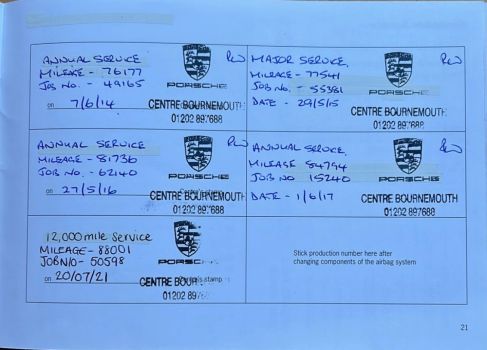 ANNUAL SERVICE
MILEAGE - 76177
JOB No. - 49165
on 7/6/14
PORSCHE
CENTRE BOURNEMOUTH
01202 897688
MAJOR SERVICE
MILEAGE - 77541
JOB No. - 55381
DATE - 29/5/15
PORSCHE
CENTRE BOURNEMOUTH
01202 897688
ANNUAL SERVICE
MILEAGE - 81736
JOB No - 62140
on 27/5/16
PORSCHE
CENTRE BOURNEMOUTH
01202 897688
ANNUAL SERVICE
MILEAGE 84794
JOB NO 15240
DATE - 1/6/17
PORSCHE
CENTRE BOURNEMOUTH
01202 897688
12,000 mile Service
MILEAGE - 88001
JOB N/O - 50598
on 20/07/21
PORSCHE
CENTRE BOUR
stamp
01202 897
Stick production number here after
changing components of the airbag system
21